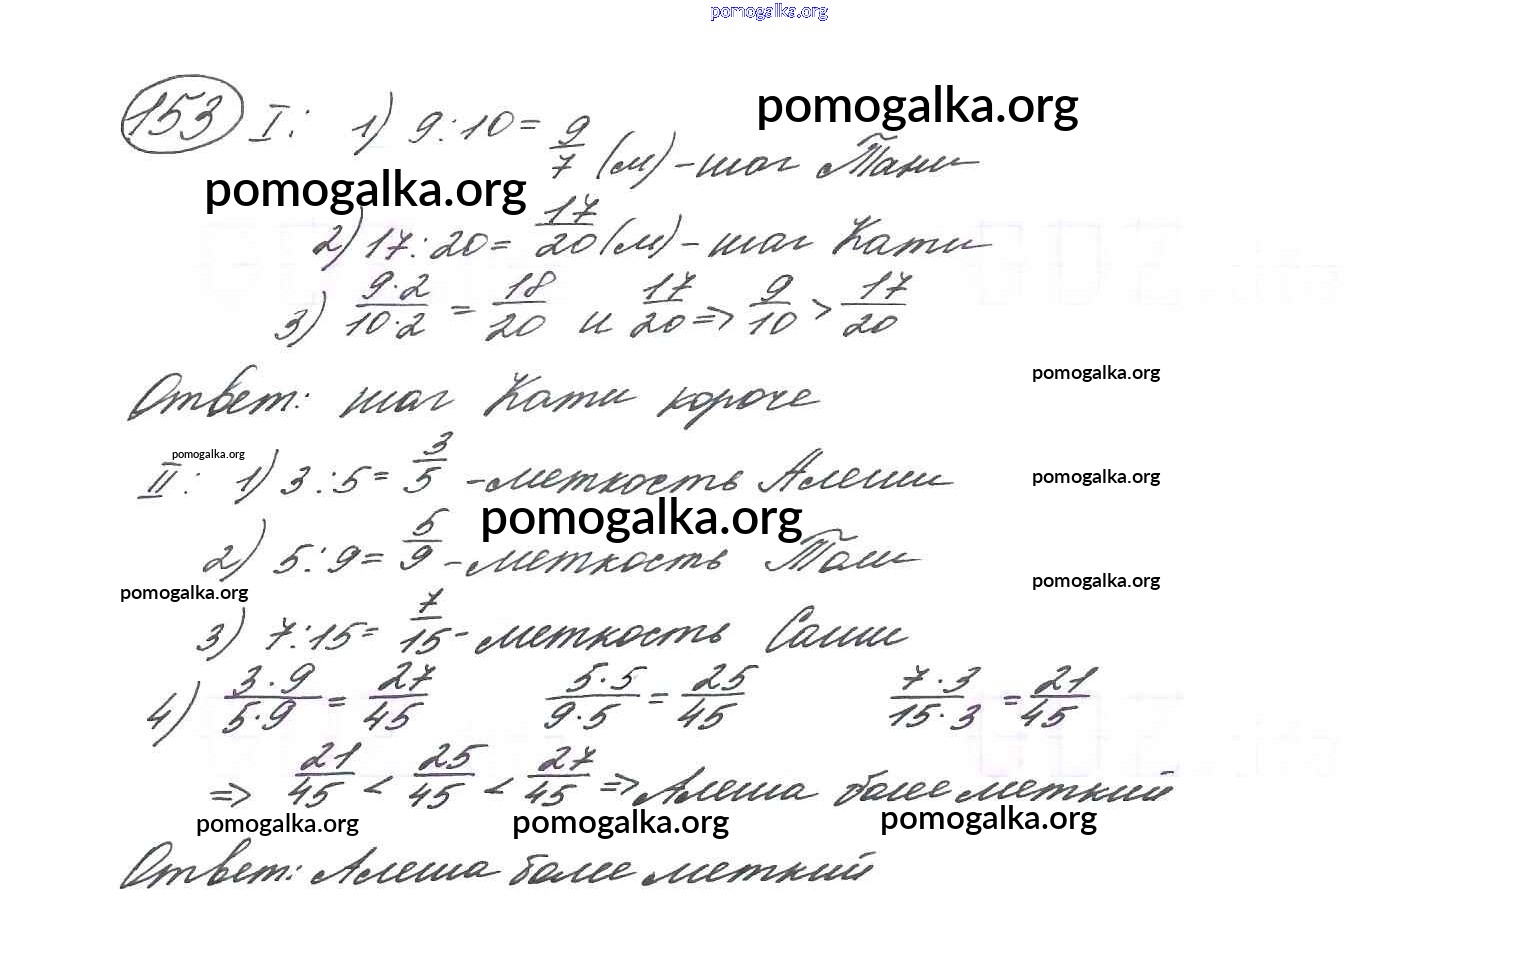 pomogalka.org
153 I: 1) 9:10= 9/7 (м) - шаг Тани
pomogalka.org
pomogalka.org
2) 17:20= 17/20 (м) - шаг Кати
3) 9·2/10·2 = 18/20 и 17/20 => 9/10 > 17/20
pomogalka.org
Ответ: шаг Кати короче
pomogalka.org
II: 1) 3:5= 3/5 -меткость Алеши
pomogalka.org
pomogalka.org
2) 5:9= 5/9 -меткость Таш
pomogalka.org
pomogalka.org
3) 7:15= 7/15 - меткость Саши
4) 3·9/5·9 = 27/45 5·5/9·5 = 25/45 7·3/15·3 = 21/45
=> 21/45 < 25/45 < 27/45 => Алеша более меткий
pomogalka.org pomogalka.org pomogalka.org
Ответ: Алеша более меткий